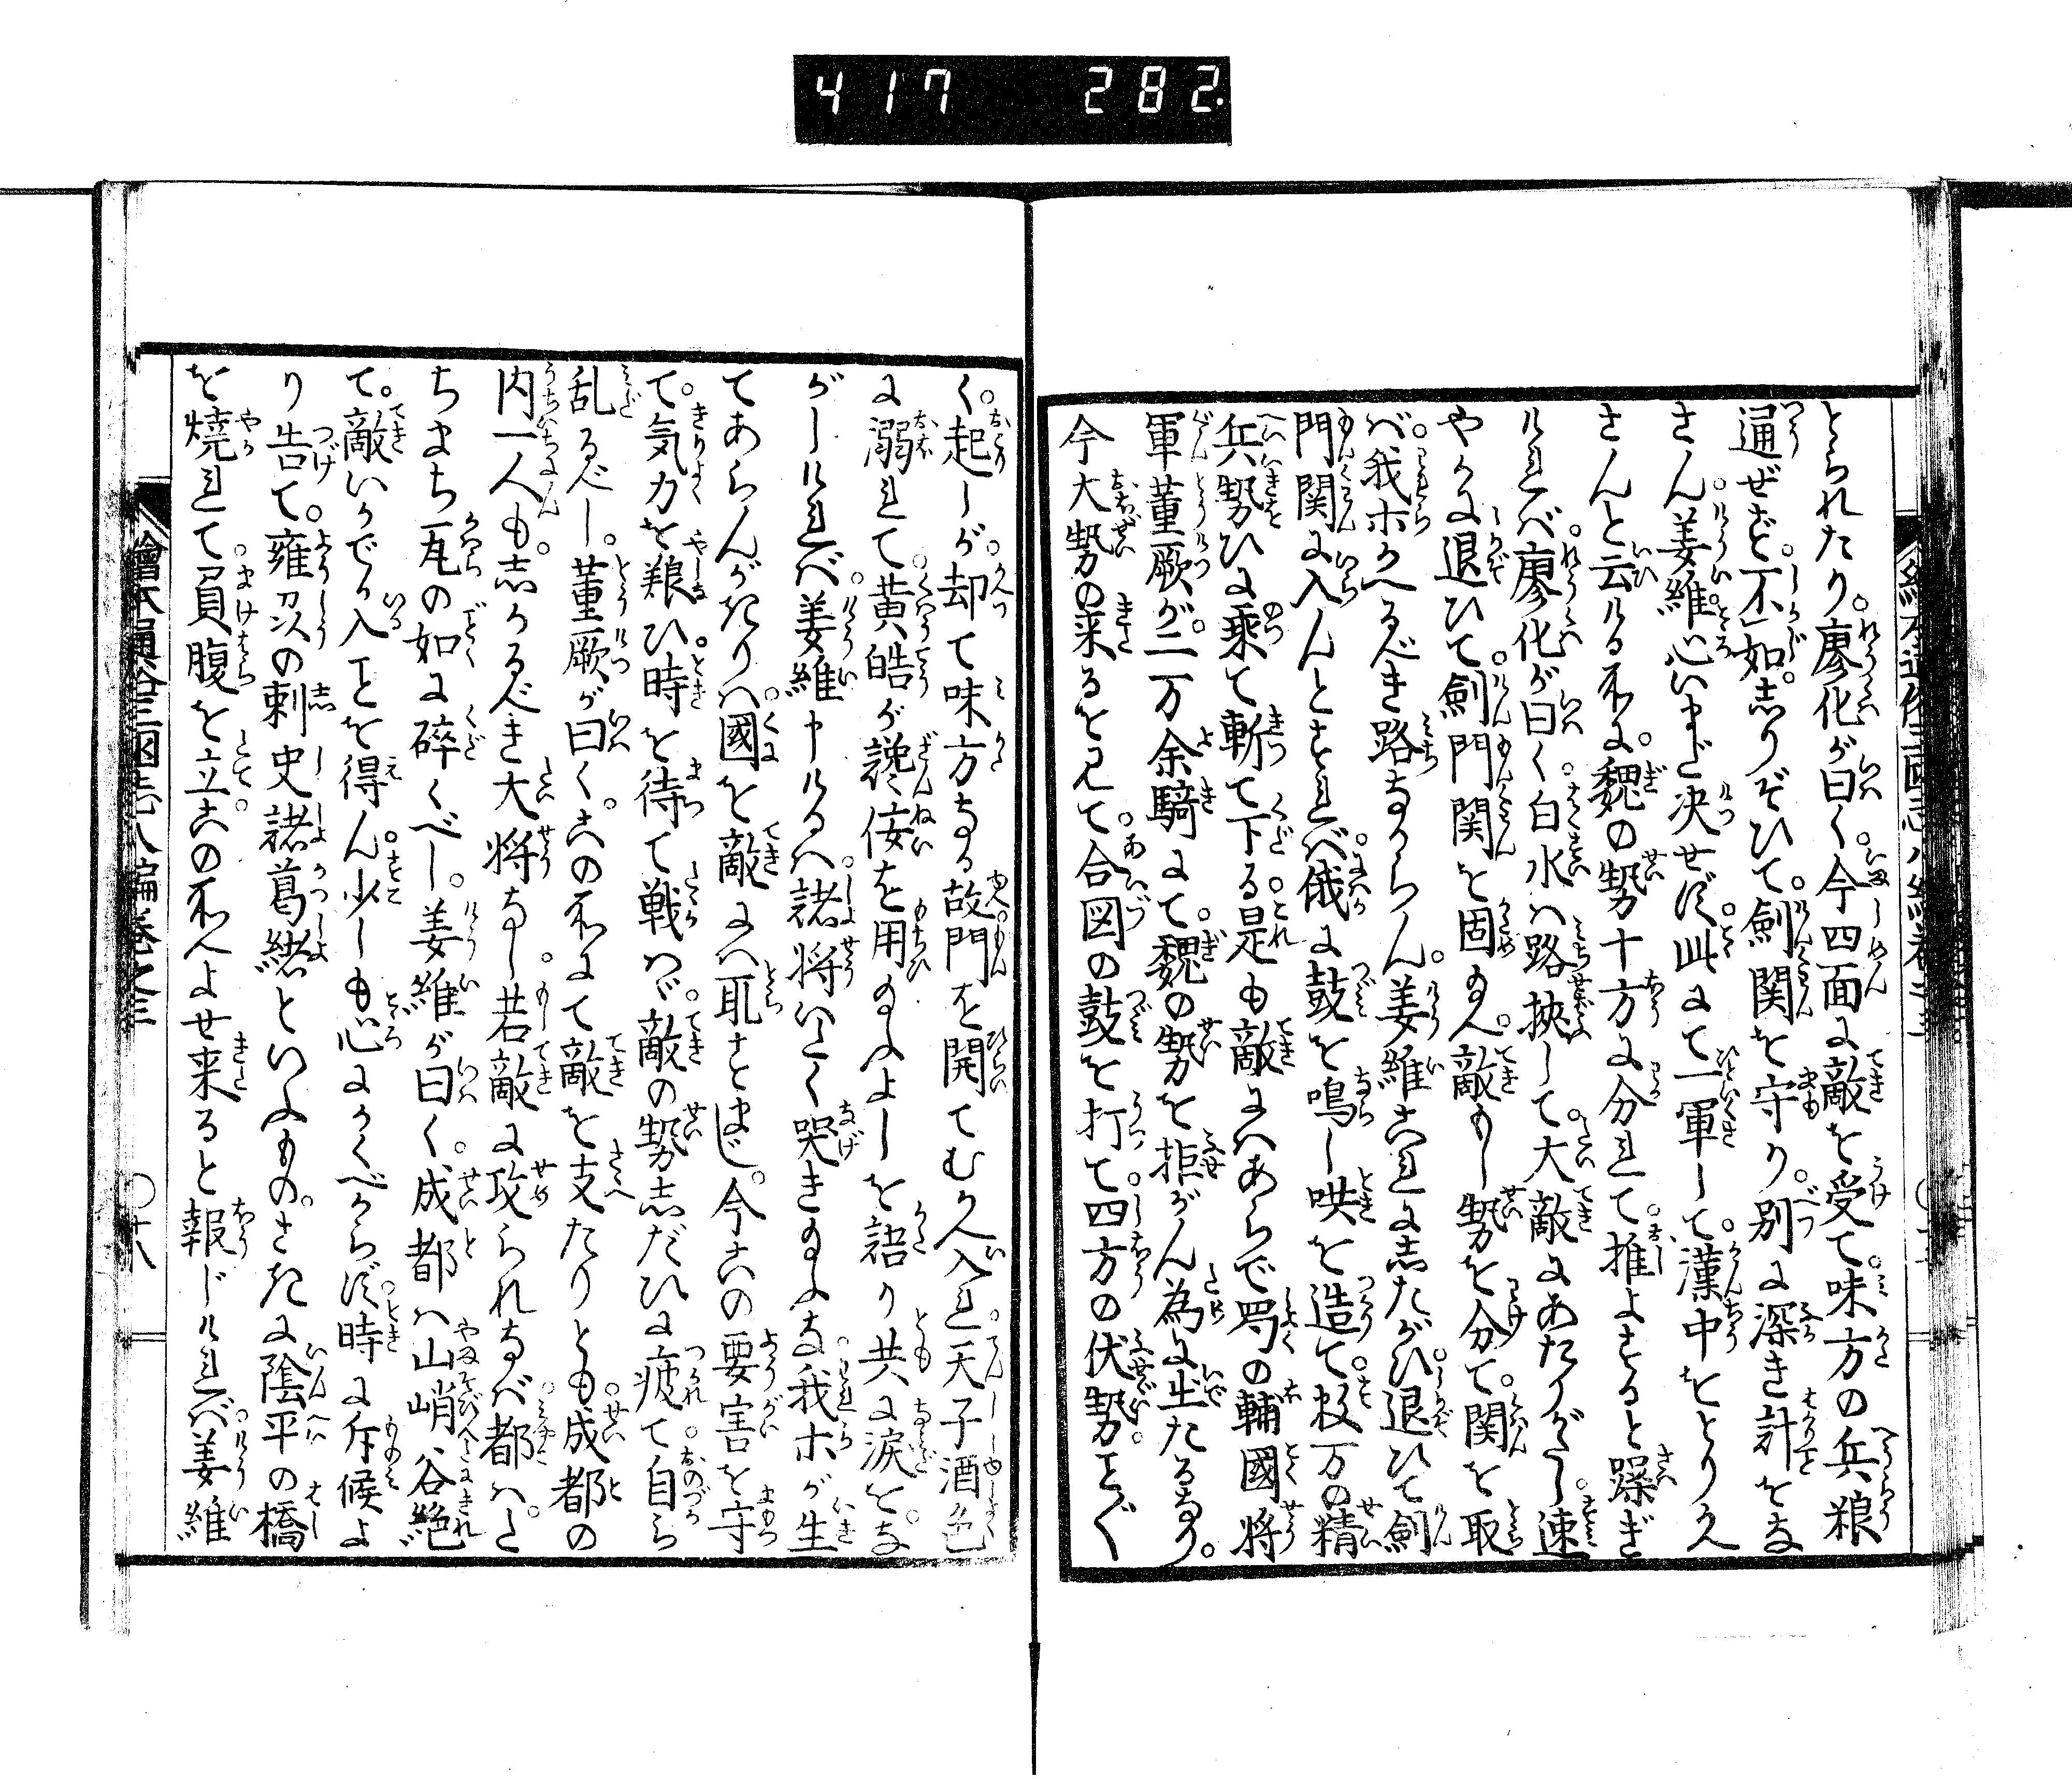 417 282.
とられたり。廖化が曰く。今四面に敵を受て。味方の兵粮
通ぜず。不如。志りぞひて。剣関を守り。別に深き計をな
さん。姜維。心いまだ決せず。此にて一軍して。漢中をとりかへ
さんと云ける所に。魏の勢十方に分れて。推よすると躁ぎ
ければ。廖化が曰く。白水は路挾して。大敵にあたりがたし。速
やかに退ひて。剣門関を固め玉へ。敵もし勢を分て。関を取
ば。我ホかへるべき路なからん。姜維これに志たがひ。退ひて剣
門関に入んとすれば。俄に鼓を鳴し哄を造て。数万の精
兵勢ひに乗て斬て下る。是も敵にはあらで蜀の輔國将
軍董厥が。二万余騎にて。魏の勢を拒がん為に出たるなり。
今大勢の来るを見て。合図の鼓を打て。四方の伏勢。こと〴〵
く。起しが。却て味方なる故。門を開てむかへ入れ。天子酒色
に溺れて。黄皓が讒佞を用ゐ玉ふよしを語り。共に涙を。な
がしければ。姜維申けるは。諸将いたく哭き玉ふな。我ホが生
てあらんかぎりは。國を敵には取すまじ。今この要害を守
て。気力を粮ひ。時を待て戦はゞ。敵の勢志だひに疲て。自ら
乱るべし。董厥が曰く。この所にて敵を支たりとも。成都の
内一人も。志かるべき大将なし。若敵に攻られなば。都は。た
ちまち瓦の如に砕くべし。姜維が曰く。成都は山峭谷絶
て。敵いかでか入ことを得ん。少しも心にかくべからず。時に斥候よ
り告て。雍州の刺史諸葛緒といふもの。さきに陰平の橋
を焼れて。負腹を立。この所へよせ来ると報じければ。姜維
繪本通俗三國志八編巻之三 〇十八